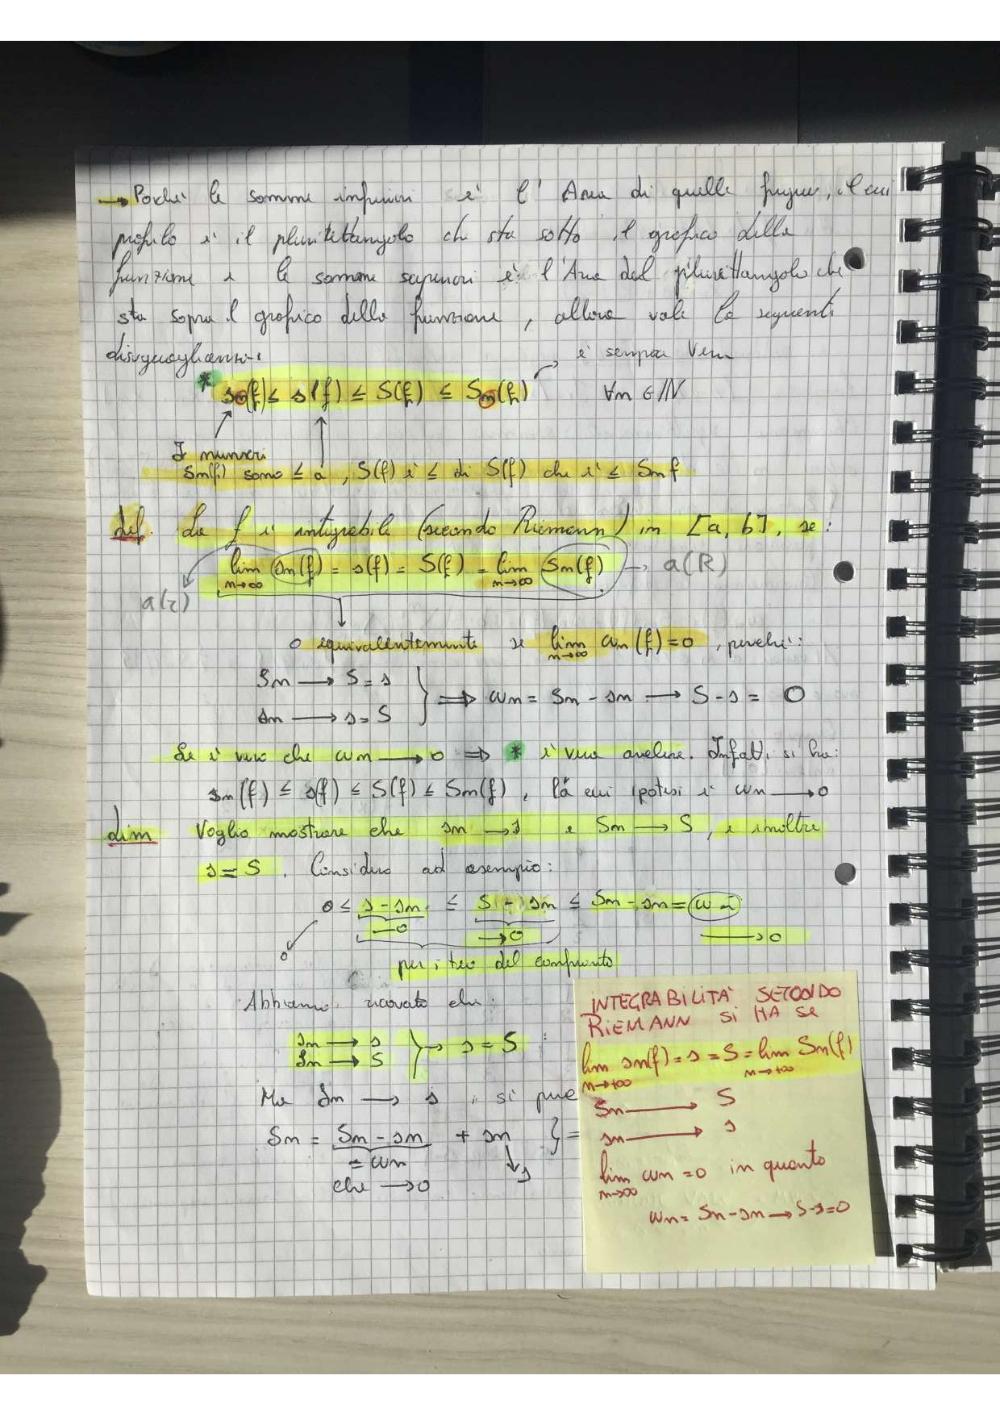 → Poiché le somme inferiori è l' Area di quelle figure, il cui
profilo è il plurirettangolo che sta sotto il grafico della
funzione e le somme superiori è l'Area del plurirettangolo che
sta sopra il grafico della funzione, allora vale la seguenti
disuguaglianze
è sempre vera
* sn(f) ≤ s(f) ≤ S(f) ≤ Sn(f) ∀n ∈ ℕ
I numeri
sn(f) sono ≤ a , S(f) è ≤ di S(f) che è ≤ Snf
def. La f è integrabile (secondo Riemann) in [a, b], se:
lim n→∞ sn(f) = s(f) = S(f) = lim n→∞ Sn(f) → a(R)
a(r)
o equivalentemente se lim n→∞ ωn(f) = 0 , perché:
Sn → S = s
sn → s = S } ⟹ ωn = Sn - sn → S - s = 0
Se è vero che ωn → 0 ⟹ * è vera anche. Infatti si ha:
sn(f) ≤ s(f) ≤ S(f) ≤ Sn(f) , la cui ipotesi è ωn → 0
dim Voglio mostrare che sn → s e Sn → S , e inoltre
s = S . Considero ad esempio:
0 ≤ s - sn ≤ S - sn ≤ Sn - sn = ωn
0 → 0 → 0 → 0
per i teo del confronto
Abbiamo ricavato che:
sn → s
sn → S } → s = S :
Ma sn → s , si può
Sn = Sn - sn + sn } =
= ωn → s
che → 0
INTEGRABILITÀ SECONDO
RIEMANN SI HA SE
lim n→+∞ sn(f) = s = S = lim n→+∞ Sn(f)
Sn → S
sn → s
lim n→∞ ωn = 0 in quanto
ωn = Sn - sn → S - s = 0